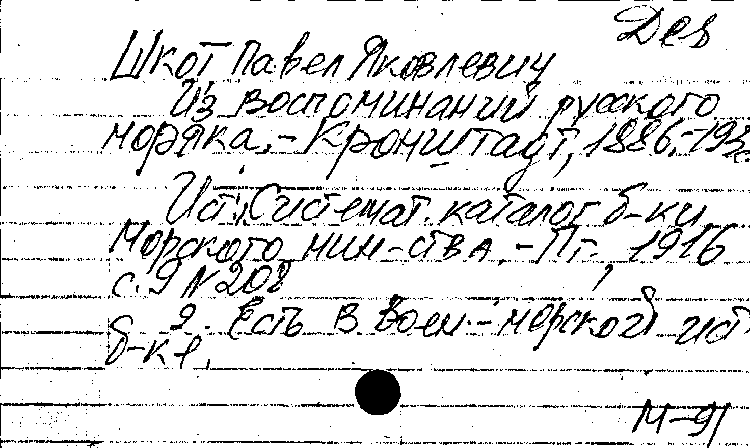 Дев
Шкот Павел Яковлевич
Из воспоминаний русского
моряка. - Кронштадт, 1886. - 193с.
Ист.: Системат. каталог б-ки
Морского мин-ства. - Пг., 1916
с. 9 № 208
2. Есть в Воен.-морской ист.
б-ке.
М-91